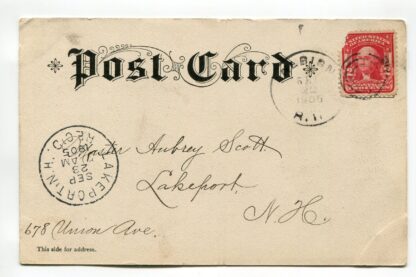 * Post Card *
UNITED STATES OF AMERICA
1905
N.Y.
LAKEPORT, N.H.
REC'D.
SEP
23
AM
1905
Master Aubrey Scott
Lakeport,
N. H.
678 Union Ave.
This side for address.